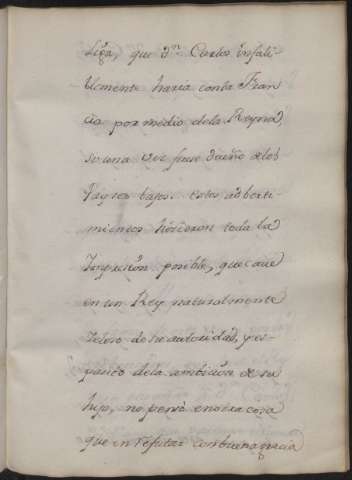 Liga, que Dn. Carlos infali-
blemente haria con la Fran-
cia por medio de la Reyna,
si una vez fuese dueño de los
Payses bajos. Estos adberti-
mientos hicieron toda la
Impresion posible, que cave
en un Rey naturalmente
Zeloso de su autoridad, y es-
pantado de la ambicion de su
hijo, no pensó en otra cosa
que en rehusar con buena gracia